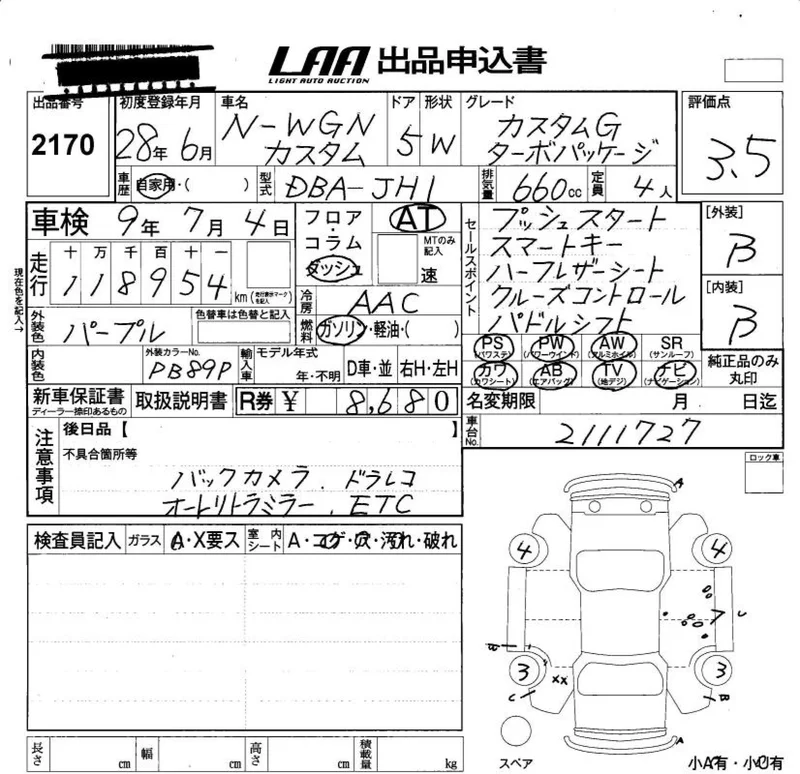 LAA 出品申込書
LIGHT AUTO AUCTION
出品番号 初度登録年月 車名 ドア 形状 グレード 評価点
2170 28年 6月 N-WGN カスタム 5 W カスタムG ターボパッケージ 3.5
車歴 自家用・( ) 型式 DBA-JH1 排気量 660cc 定員 4人
車検 9年 7月 4日
フロア・コラム ダッシュ
AT
MTのみ記入 速
セールスポイント
プッシュスタート
スマートキー
ハーフレザーシート
クルーズコントロール
パドルシフト
[外装]
B
[内装]
B
現在色を記入→
走行 十 万 千 百 十 一
118954 km (走行表示マークを記入)
冷房 AAC
燃料 ガソリン・軽油・( )
外装色 パープル 色替車は色替と記入
内装色 外装カラーNo. PB89P 輸入車 モデル年式 年・不明 D車・並 右H・左H
PS (パワステ) PW (パワーウインド) AW (アルミホイル) SR (サンルーフ)
カワ (カワシート) AB (エアバッグ) TV (地デジ) ナビ (ナビゲーション)
純正品のみ丸印
新車保証書 ディーラー捺印あるもの 取扱説明書 R券 ¥ 8,680
名変期限 月 日迄
車台No. 2111727
注意事項
後日品【 】
不具合箇所等
バックカメラ、ドラレコ
オートリトラミラー、ETC
ロック車
検査員記入 ガラス A・X要ス 室内シート A・コゲ・穴・汚れ・破れ
A
4 4
U
W
3 3
XX
C B
A
スペア
小A有・小U有
長さ cm 幅 cm 高さ cm 積載量 kg